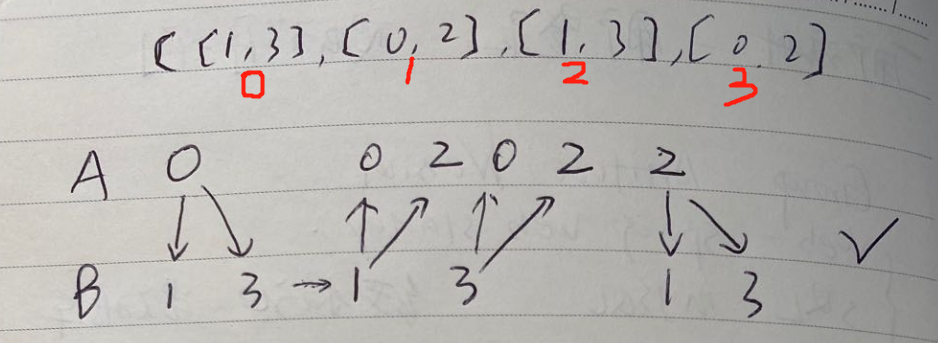 [[1,3],[0,2],[1,3],[0,2]
0 1 2 3
A 0 0 2 0 2 2
↓ ↘ ↑ ↗ ↑ ↗ ↓ ↘ ✓
B 1 3 → 1 3 1 3